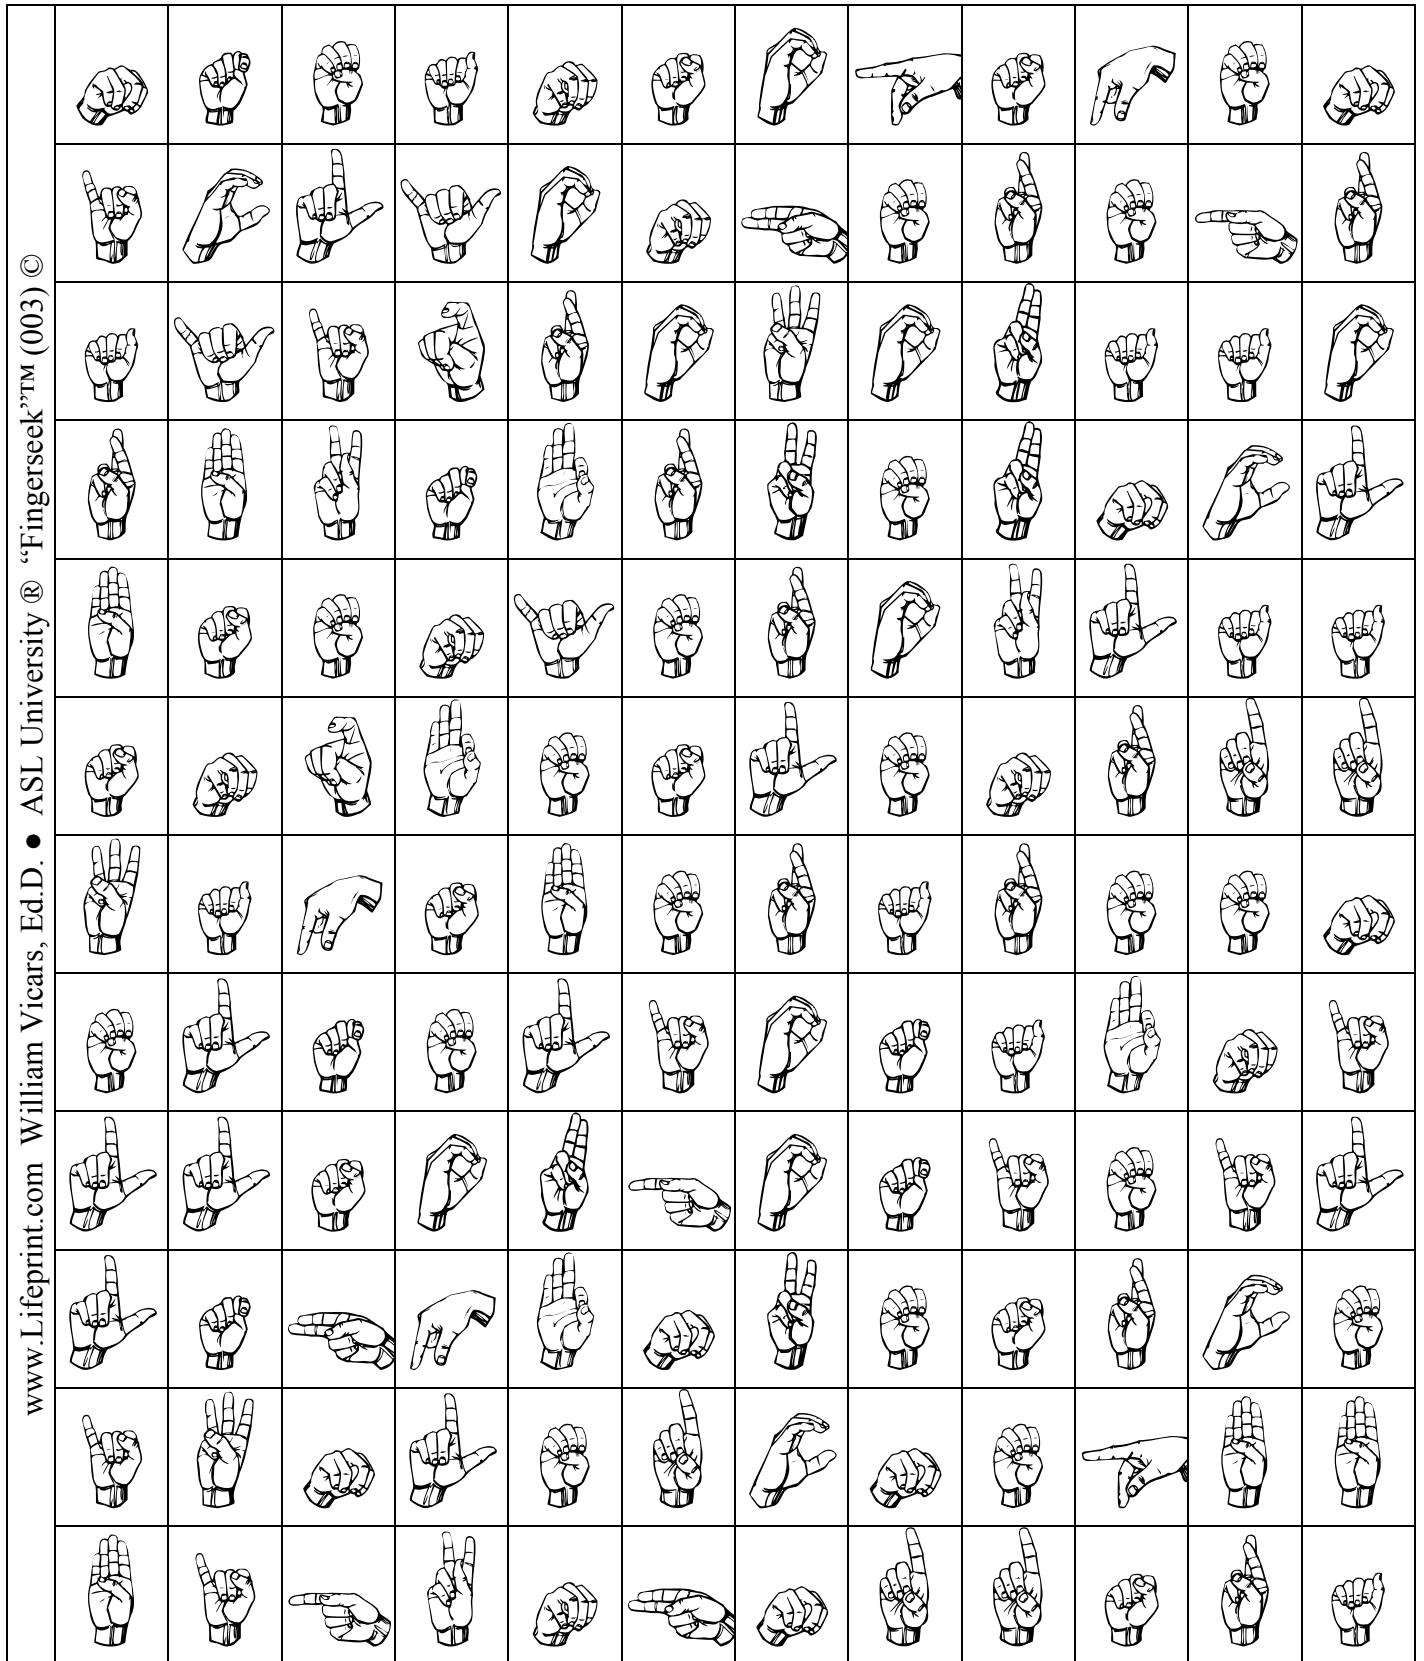 www.Lifeprint.com William Vicars, Ed.D. ● ASL University ® “Fingerseek”™ (003) ©